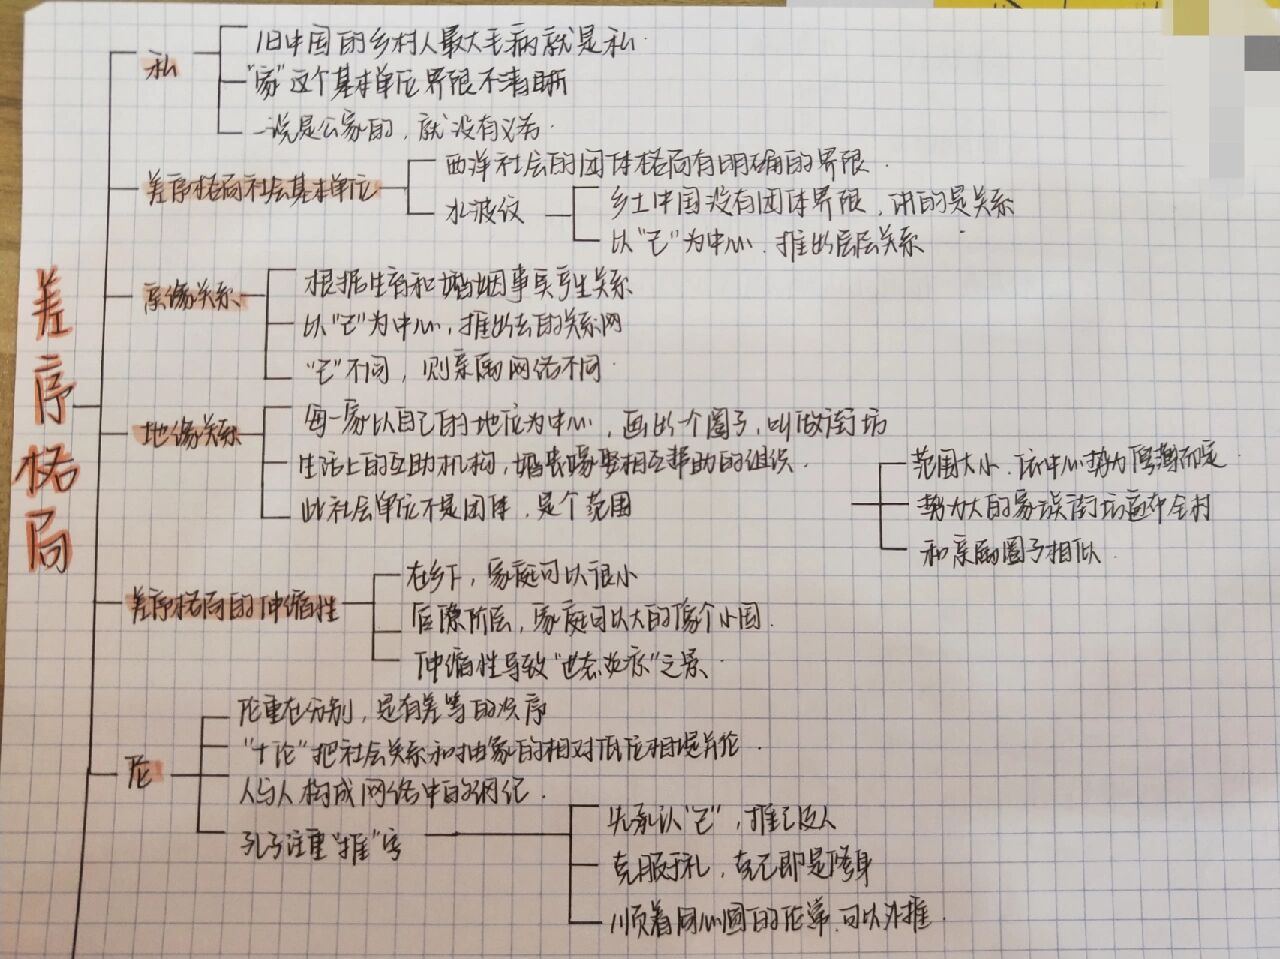 差序格局
私
旧中国的乡村人最大毛病就是私.
"家"这个基本单位界限不清晰
一说是公家的，就没有义务.
差序格局社会基本单位
西洋社会的团体格局有明确的界限.
水波纹
乡土中国没有团体界限，讲的是关系
以"己"为中心，推出层层关系
亲缘关系
根据生育和婚姻事实产生关系
以"己"为中心，推出去的关系网
"己"不同，则亲属网络不同
地缘关系
每一家以自己的地位为中心，画出个圈子，叫做街坊
生活上的互助机构，婚丧嫁娶相互帮助的组织.
此社会单位不是团体，是个范围
范围大小，依中心势力厚薄而定
势力大的家族街坊遍布全村
和亲属圈子相似.
差序格局的伸缩性
在乡下，家庭可以很小
官僚阶层，家庭可以大的像个小国.
伸缩性导致"世态炎凉"之景.
伦
伦重在分别，是有差等的次序
"十伦"把社会关系和抽象的相对位相提并论.
人与人构成网络中的纲纪.
孔子注重"推"字
先承认"己"，推己及人
克服于礼，克己即是修身
顺着同心圆的伦常，可以外推.